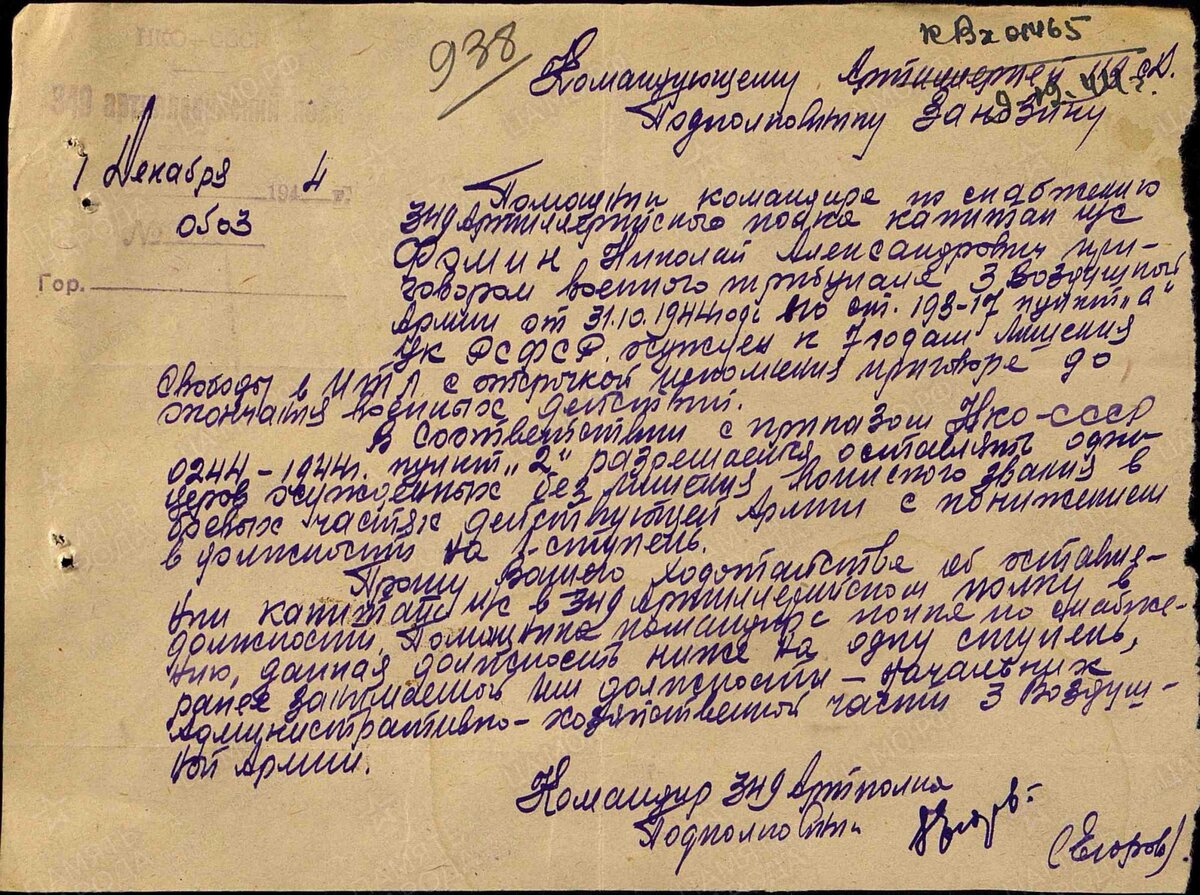 НКО-СССР
349 Артиллерийский полк
7 Декабря 1944 г.
№ 0503
Гор.
938
к Вх 01465
9.12.44 г.
Командующему Артиллерией
Подполковнику Занозину
Помощник командира по снабжению
349 Артиллерийского полка капитан
Фомин Николай Александрович при-
говором военного трибунала 3 Воздушной
Армии от 31.10.1944 года по ст. 193-17 пункт „а“
УК РСФСР осужден к 7 годам лишения
свободы в ИТЛ с отсрочкой исполнения приговора до
окончания военных действий.
В соответствии с приказом НКО-СССР
0244-1944г. пункт „2“ разрешается оставлять офи-
церов осужденных без лишения воинского звания в
боевых частях действующей Армии с понижением
в должности на 1-ступень.
Прошу Вашего ходотайства об оставле-
нии капитан и/с в 349 Артиллерийском полку в
должности Помощника командира полка по снабже-
нию, данная должность ниже на одну ступень,
ранее занимаемой им должности - начальник
Административно-хозяйственной части 3 Воздуш-
ной Армии.
Командир 349 Артполка
Подполковник
(Егоров).